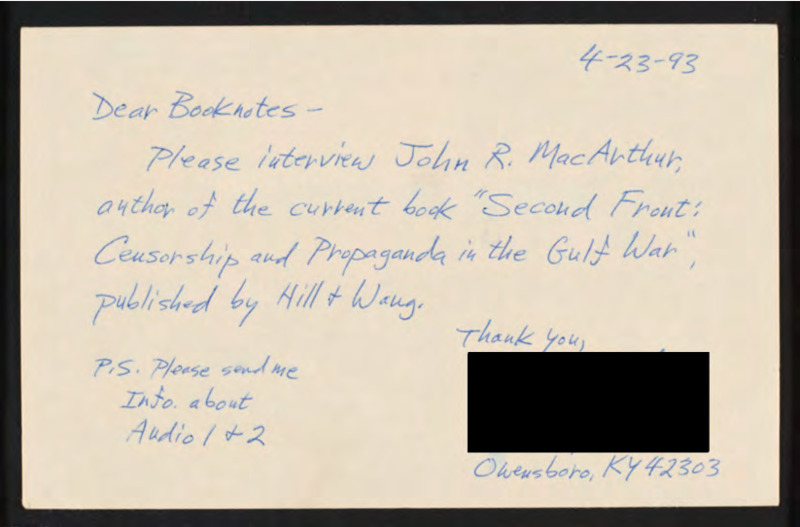 4-23-93
Dear Booknotes -
Please interview John R. MacArthur,
author of the current book "Second Front:
Censorship and Propaganda in the Gulf War",
published by Hill & Wang.
Thank you,
P.S. Please send me
Info. about
Audio 1 & 2
Owensboro, KY 42303